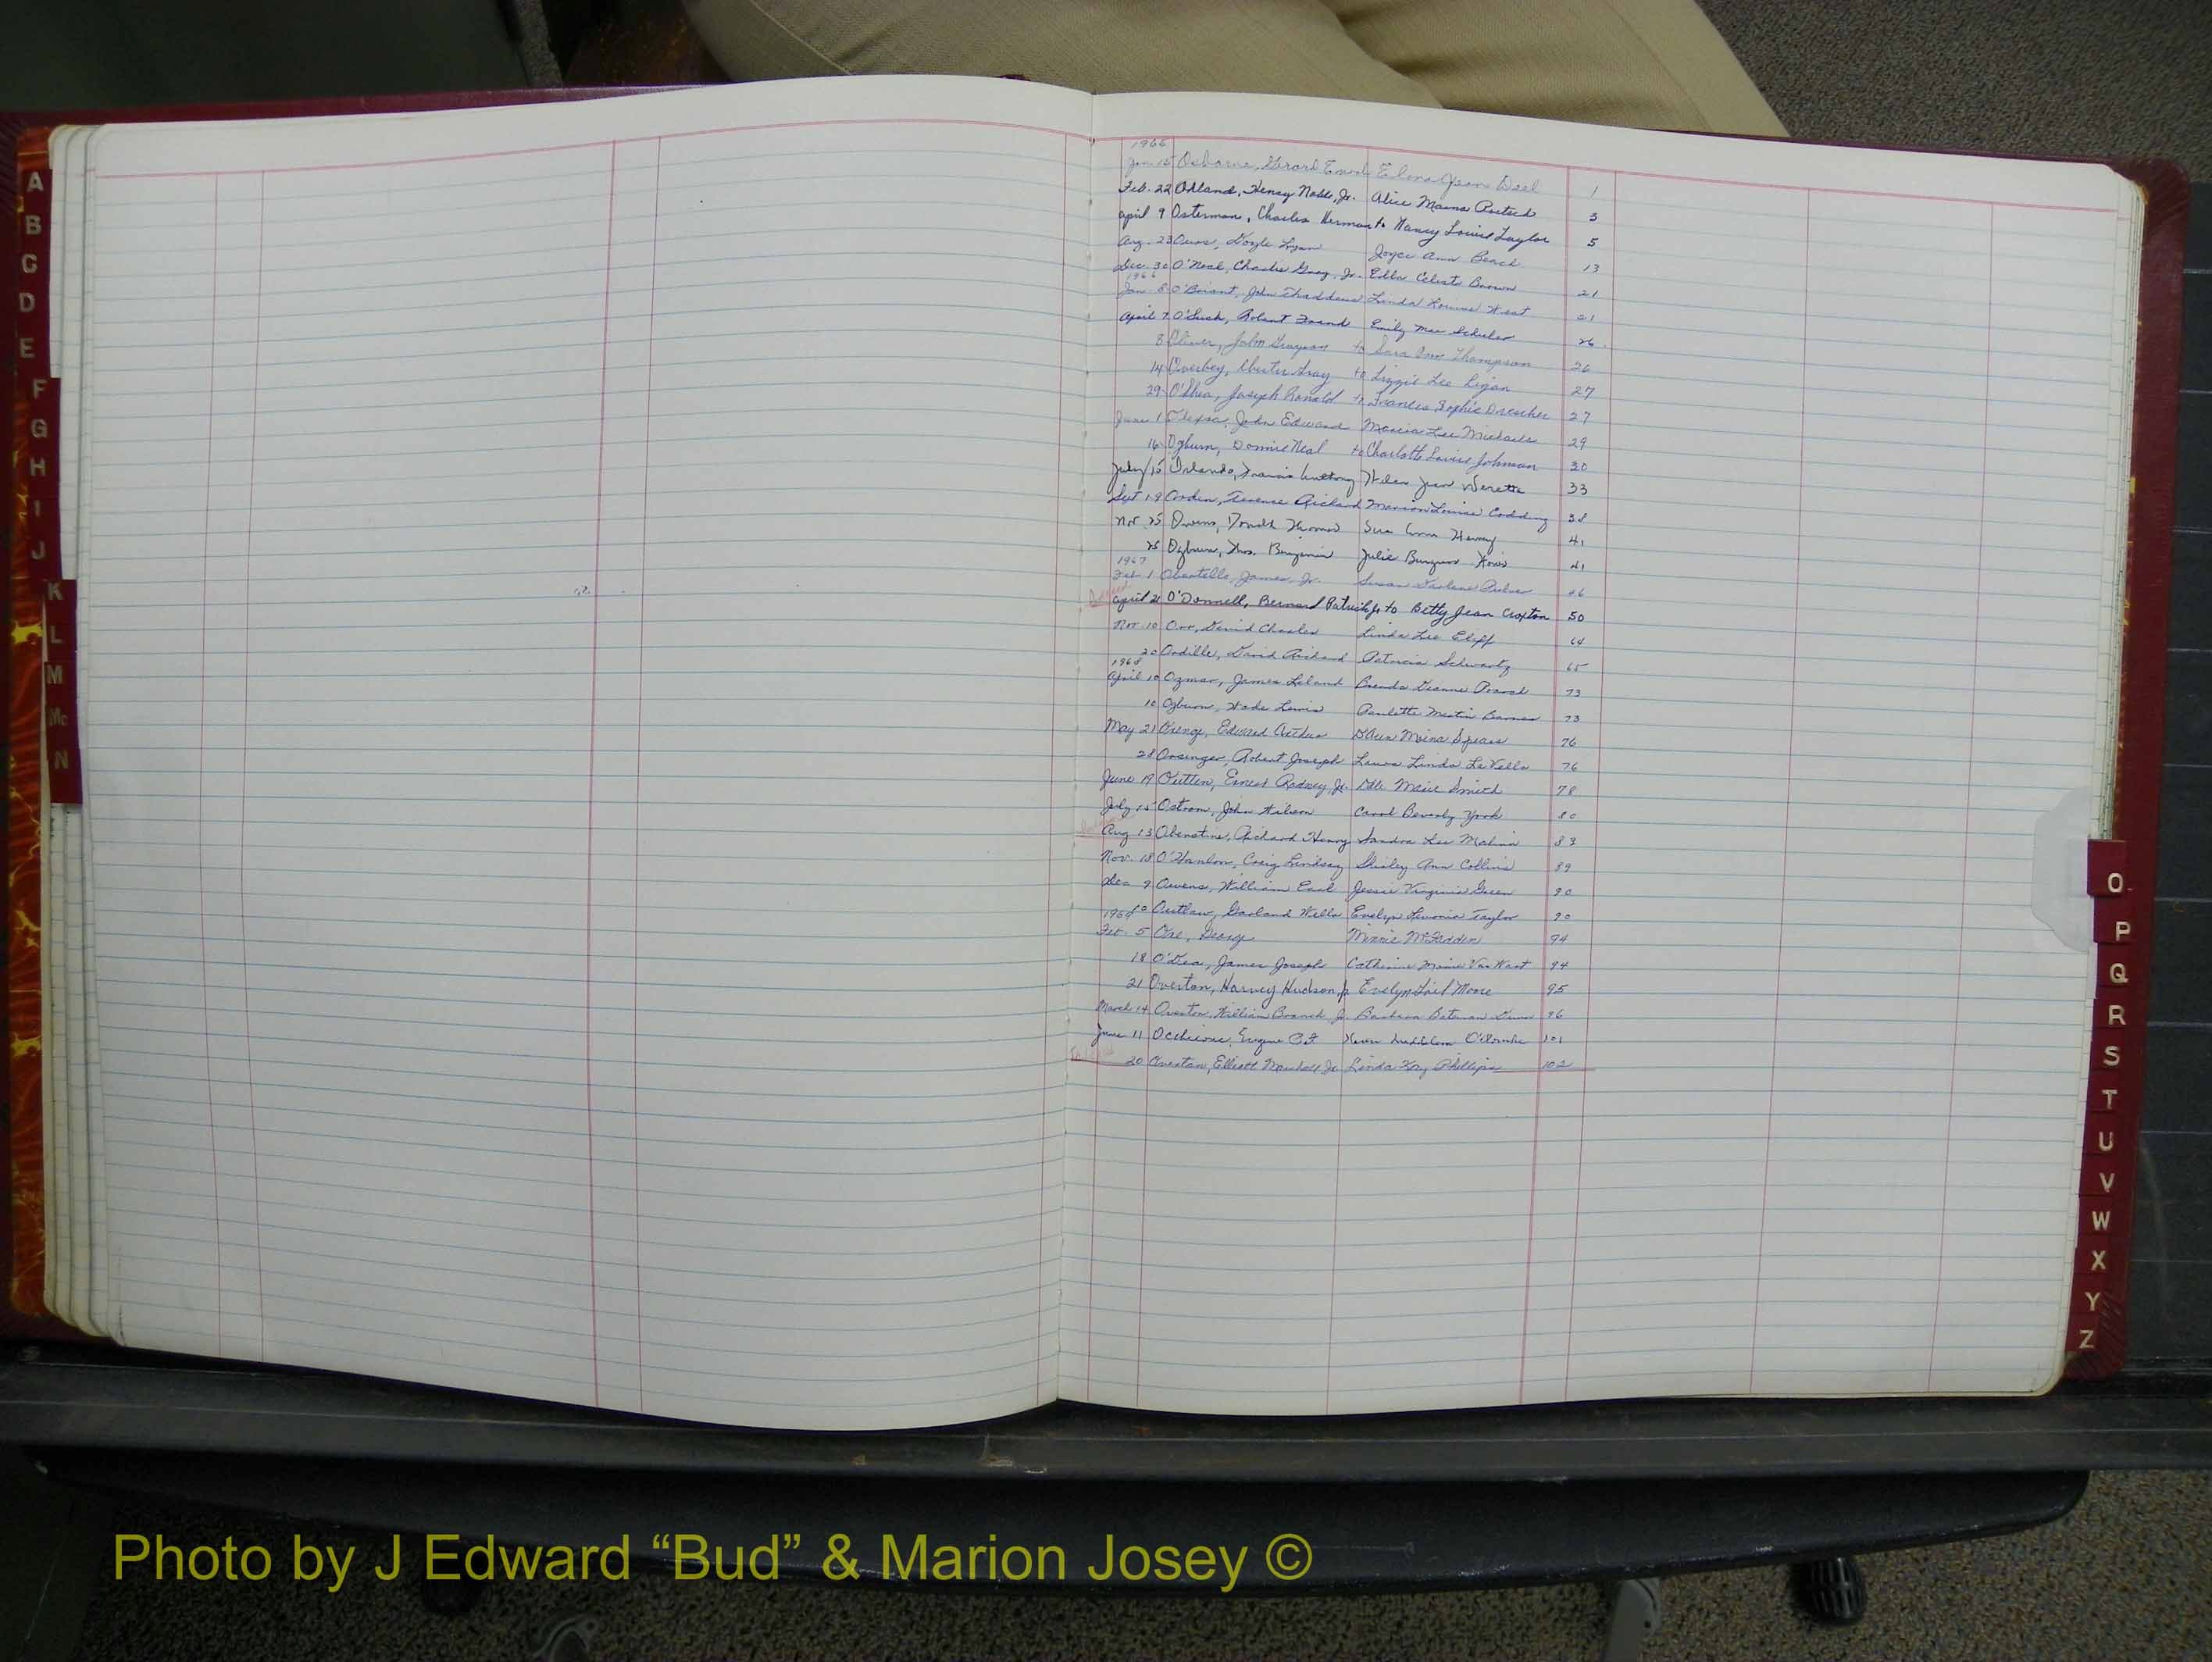 A
B
C
D
E
F
G
H
I
J
K
L
M
Mc
N
Jan 15 Osborne, Elena Jean 1
Feb. 22 Henry Noble, Jr. Alice 3
April 9 Osterman, Charles Herman to Nancy Louise Taylor 5
Aug. 23 Doyle Joyce Ann Beach 13
Dec. 30 O'Neal, Charlie Gray, Jr. Edla Celeste Brown 21
1966
Jan. 8 O'Briant, John Thaddeus Linda West 21
April 7 Robert Emily Mae Schuler 26
8 Oliver, John Grayson to Sara Ann Thompson 26
14 Overbey, Chester Gray to Lizzie Lee Ligon 27
29 O'Shea, Joseph Ronald to Frances Sophie Drescher 27
June 1 John Edward Marcia Lee Michaels 29
16 Ogburn, Donnie Neal to Charlotte Louise Johnson 30
July 15 Orlando, Francis Anthony Helen Jean 33
Sept 19 Terence Richard Marion Louise Codding 38
Nov. 25 Owens, Donald Thomas Sue Ann Henry 41
25 Ogburn, Thos. Benjamin Julie 41
1967
Feb. 1 James, Jr. Susan Darlene 46
April 21 O'Donnell, Bernard Patrick Jr to Betty Jean Croxton 50
Nov. 10 Orr, David Charles Linda Lee Eliff 64
20 Ordille, David Richard Patricia Schwartz 65
1968
April 10 Ozmar, James Leland Brenda Dianne 73
10 Ogburn, Wade Lewis Paulette Martin Barnes 73
May 21 Edward Arthur Spears 76
28 Orsinger, Robert Joseph Laura Linda La Vella 76
June 19 Outten, Ernest Rodney, Jr. Marie Smith 78
July 15 Ostrom, John Wilson Carol Beverly York 80
Aug 13 Obenstine, Richard Henry Sandra Lee 83
Nov. 18 O'Hanlon, Craig Lindsay Shirley Ann Collins 89
Dec 9 Owens, William Earl Jessie Virginia Green 90
10 Outlaw, Garland Wells Evelyn Taylor 90
Feb. 5 George Minnie McFadden 94
18 O'Dea, James Joseph Catherine Marie Van Wart 94
21 Overton, Harvey Hudson, Jr Evelyn Gail Moore 95
March 14 Overton, William Branch Jr. Barbara Bateman Dunn 96
June 11 Eugene 101
20 Overton, Elliott Marshall Jr Linda Kay Phillips 102
O
P
Q
R
S
T
U
V
W
X
Y
Z
Photo by J Edward “Bud” & Marion Josey ©